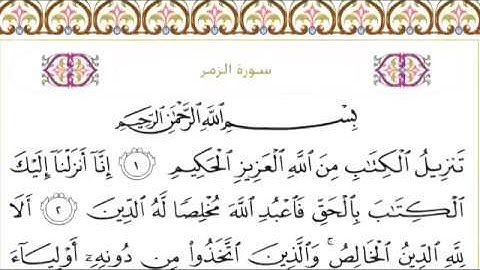 سورة الزمر
بِسْمِ ٱللَّهِ ٱلرَّحْمَٰنِ ٱلرَّحِيمِ
تَنزِيلُ ٱلْكِتَٰبِ مِنَ ٱللَّهِ ٱلْعَزِيزِ ٱلْحَكِيمِ ١ إِنَّآ أَنزَلْنَآ إِلَيْكَ
ٱلْكِتَٰبَ بِٱلْحَقِّ فَٱعْبُدِ ٱللَّهَ مُخْلِصًا لَّهُ ٱلدِّينَ ٢ أَلَا
لِلَّهِ ٱلدِّينُ ٱلْخَالِصُ ۚ وَٱلَّذِينَ ٱتَّخَذُوا۟ مِن دُونِهِۦٓ أَوْلِيَآءَ